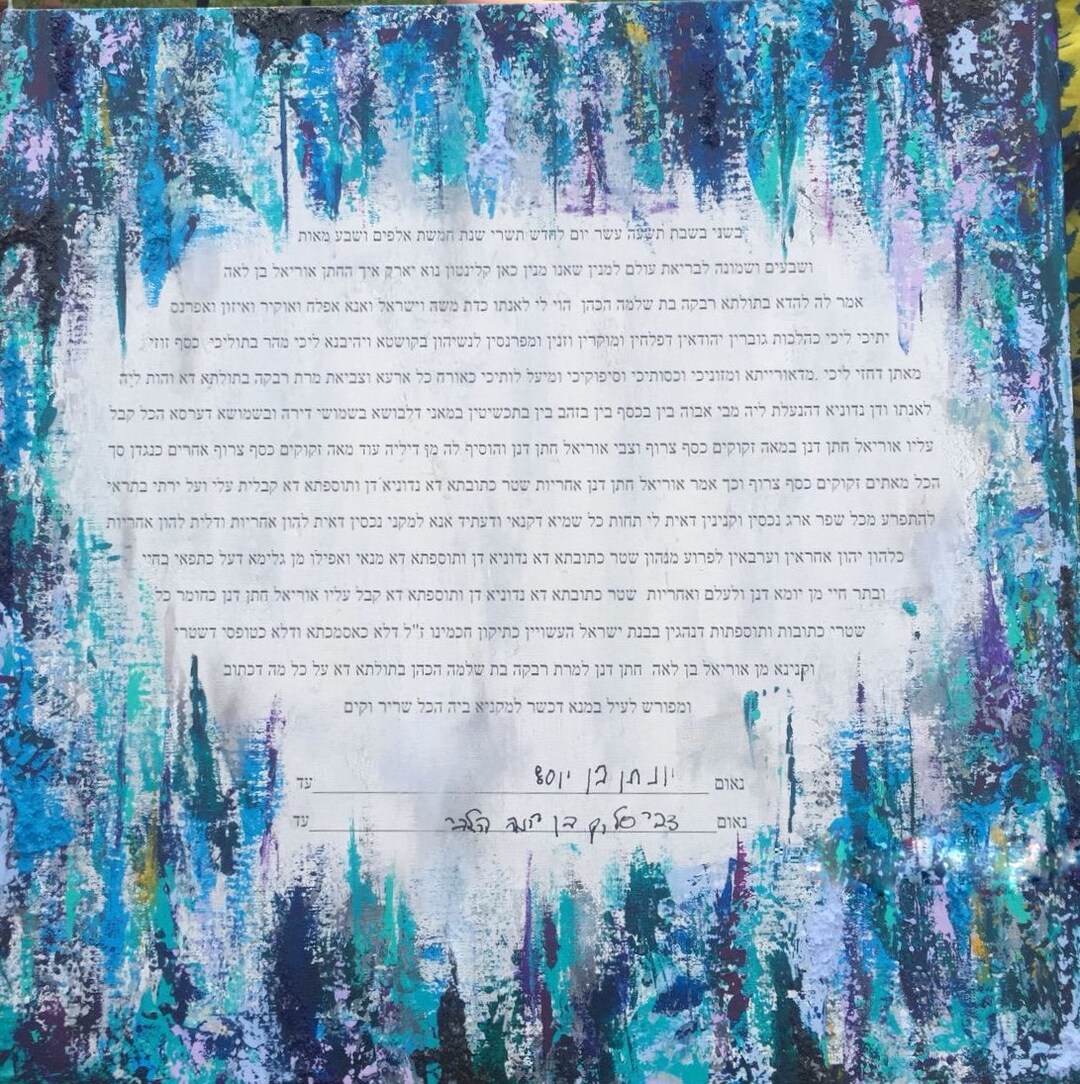 בשני בשבת תשעה עשר יום לחדש תשרי שנת חמשת אלפים ושבע מאות
ושבעים ושמונה לבריאת עולם למנין שאנו מנין כאן קלינטון נוא יארק איך החתן אוריאל בן לאה
אמר לה להדא בתולתא רבקה בת שלמה הכהן הוי לי לאנתו כדת משה וישראל ואנא אפלח ואוקיר ואיזון ואפרנס
יתיכי ליכי כהלכות גוברין יהודאין דפלחין ומוקרין וזנין ומפרנסין לנשיהון בקושטא ויהיבנא ליכי מהר בתוליכי כסף זוזי
מאתן דחזי ליכי .מדאורייתא ומזוניכי וכסותיכי וסיפוקיכי ומיעל לותיכי כאורח כל ארעא וצביאת מרת רבקה בתולתא דא והות ליה
לאנתו ודן נדוניא דהנעלת ליה מבי אבוה בין בכסף בין בזהב בין בתכשיטין במאני דלבושא בשמושי דירה ובשמושא דערסא הכל קבל
עליו אוריאל חתן דנן במאה זקוקים כסף צרוף וצבי אוריאל חתן דנן והוסיף לה מן דיליה עוד מאה זקוקים כסף צרוף אחרים כנגדן סך
הכל מאתים זקוקים כסף צרוף וכך אמר אוריאל חתן דנן אחריות שטר כתובתא דא נדוניא דן ותוספתא דא קבלית עלי ועל ירתי בתראי
להתפרע מכל שפר ארג נכסין וקנינין דאית לי תחות כל שמיא דקנאי ודעתיד אנא למקני נכסין דאית להון אחריות ודלית להון אחריות
כלהון יהון אחראין וערבאין לפרוע מנהון שטר כתובתא דא נדוניא דן ותוספתא דא מנאי ואפילו מן גלימא דעל כתפאי בחיי
ובתר חיי מן יומא דנן ולעלם ואחריות שטר כתובתא דא נדוניא דן ותוספתא דא קבל עליו אוריאל חתן דנן כחומר כל
שטרי כתובות ותוספתות דנהגין בבנת ישראל העשויין כתיקון חכמינו ז"ל דלא כאסמכתא ודלא כטופסי דשטרי
וקנינא מן אוריאל בן לאה חתן דנן למרת רבקה בת שלמה הכהן בתולתא דא על כל מה דכתוב
ומפורש לעיל במנא דכשר למקניא ביה הכל שריר וקים
נאום יונתן בן יוסף עד
נאום בן עד